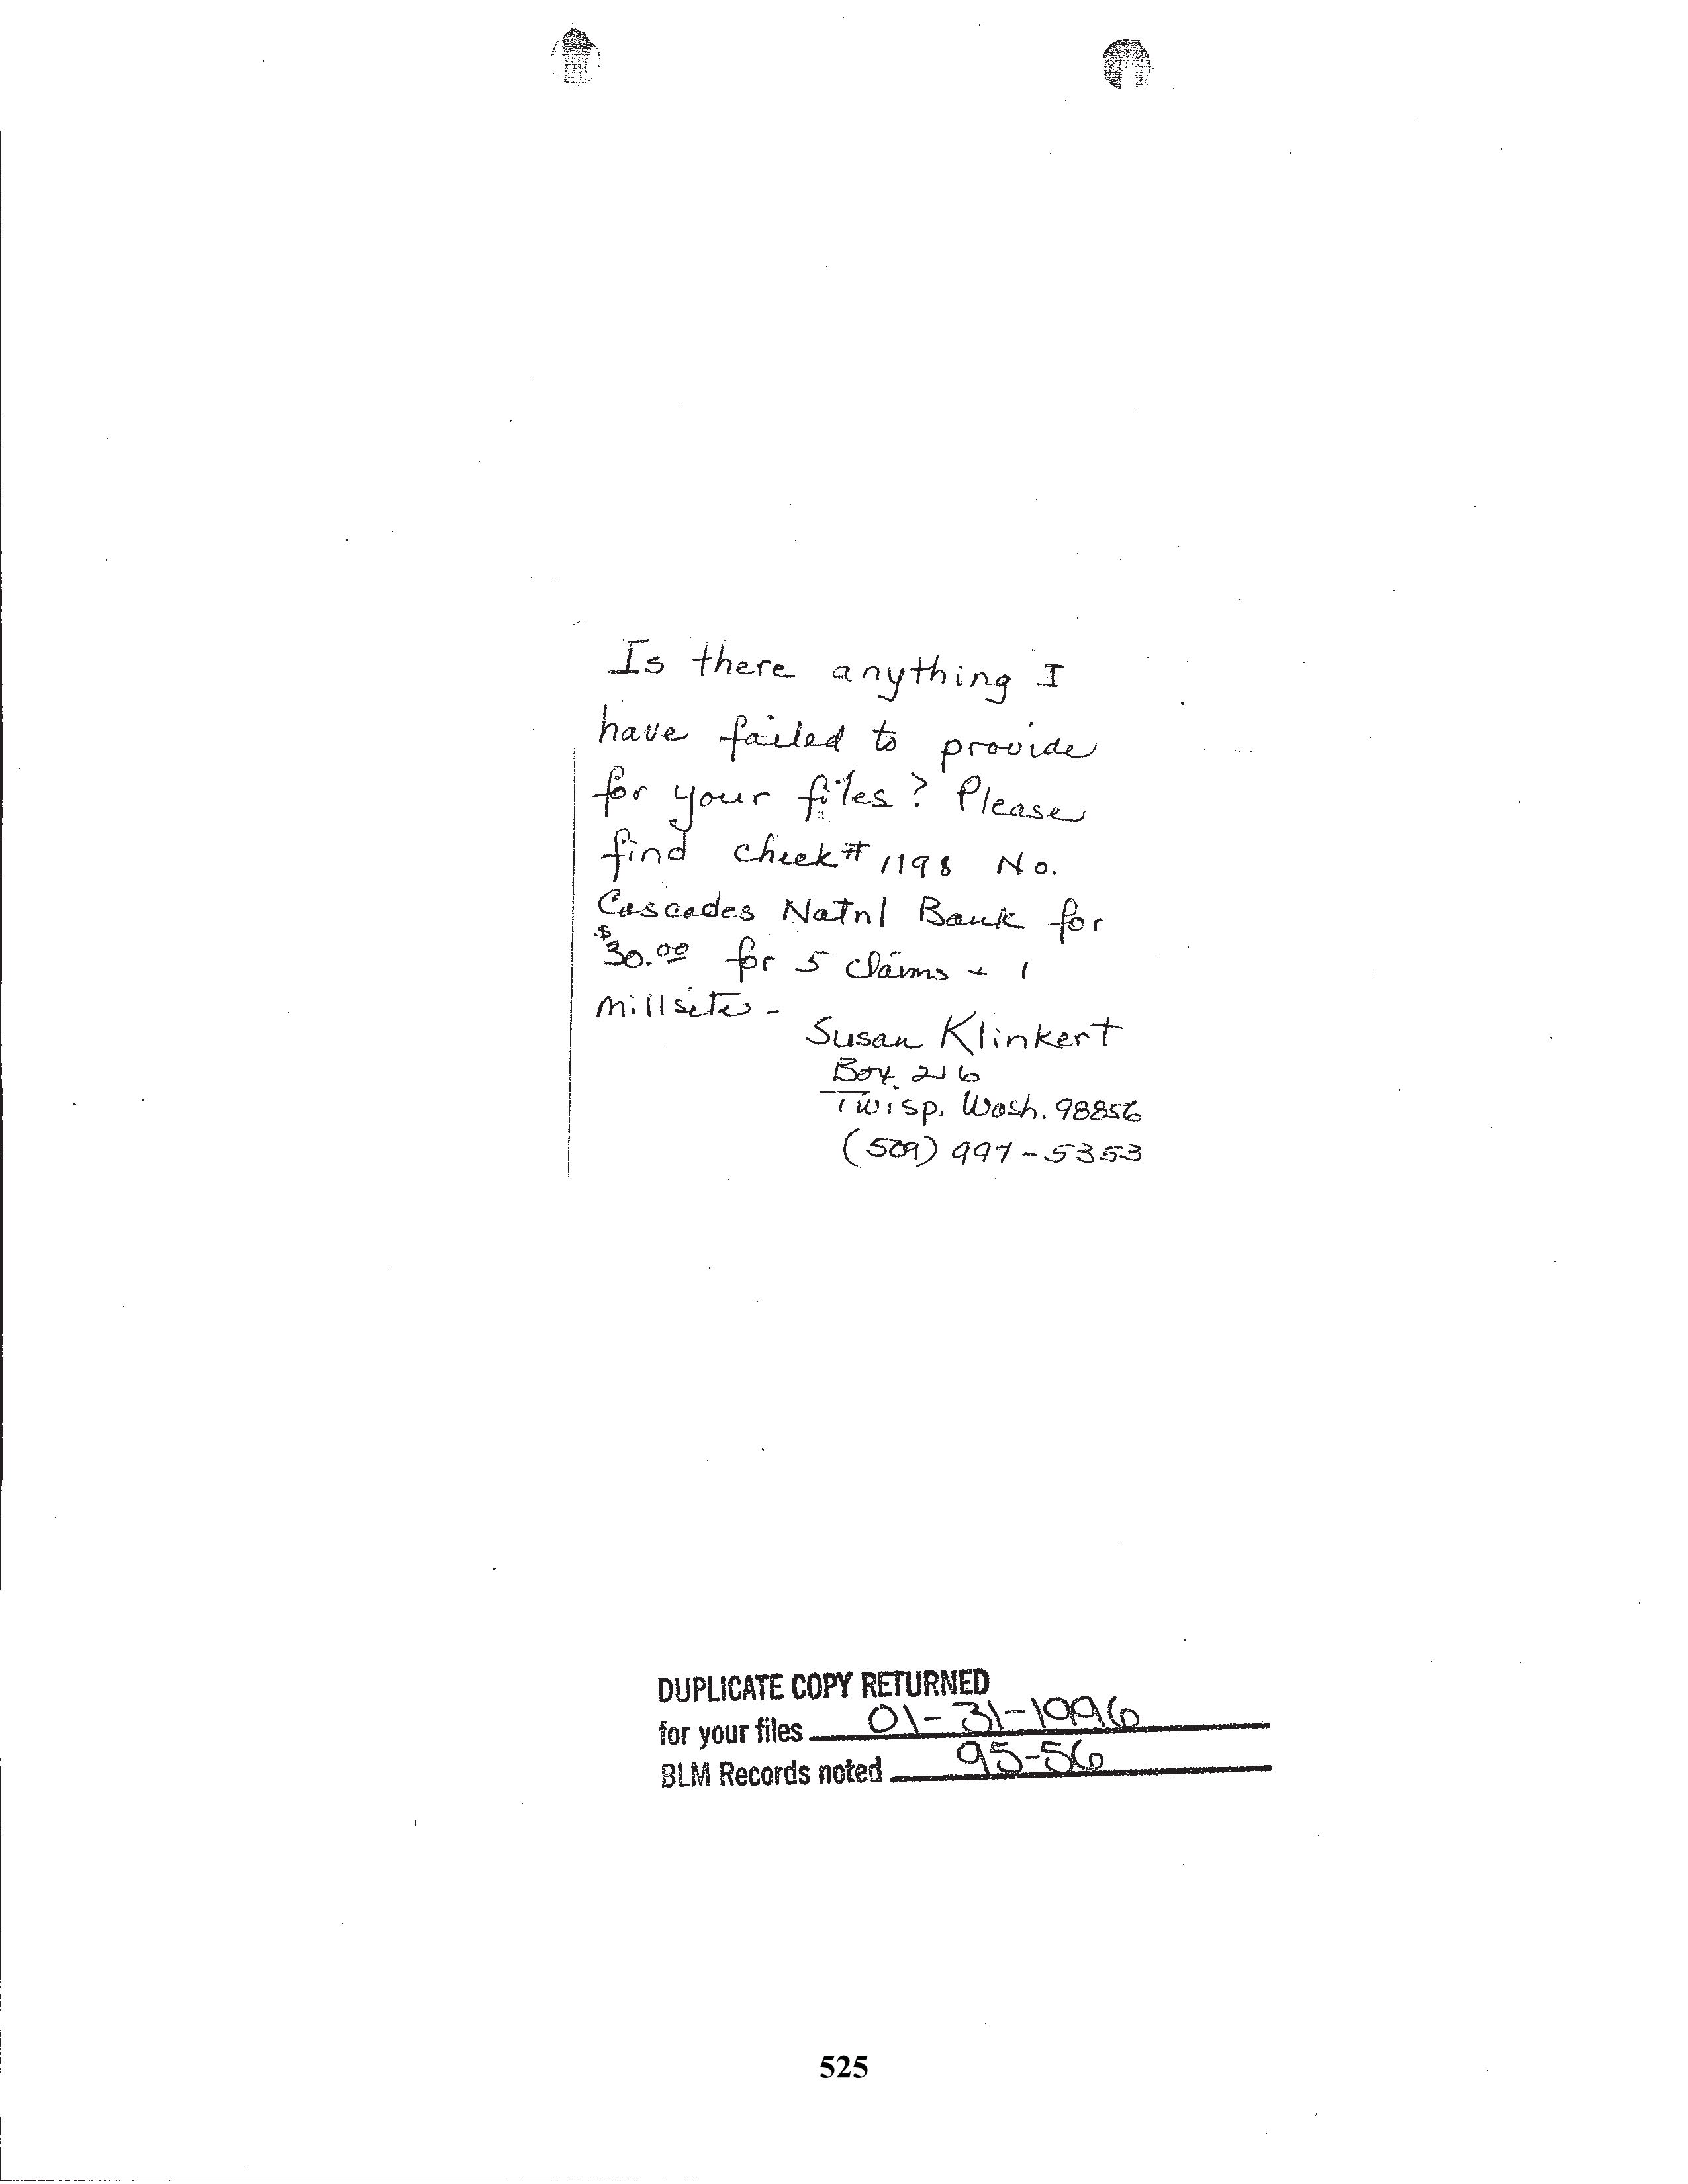 Is there anything I
have failed to provide
for your files? Please
find check # 1198 No.
Cascades Natnl Bank for
$30.00 for 5 claims + 1
Millsite -
Susan Klinkert
Box 216
Twisp, Wash. 98856
(509) 997-5353
DUPLICATE COPY RETURNED
for your files 01-31-1996
BLM Records noted 95-56
525